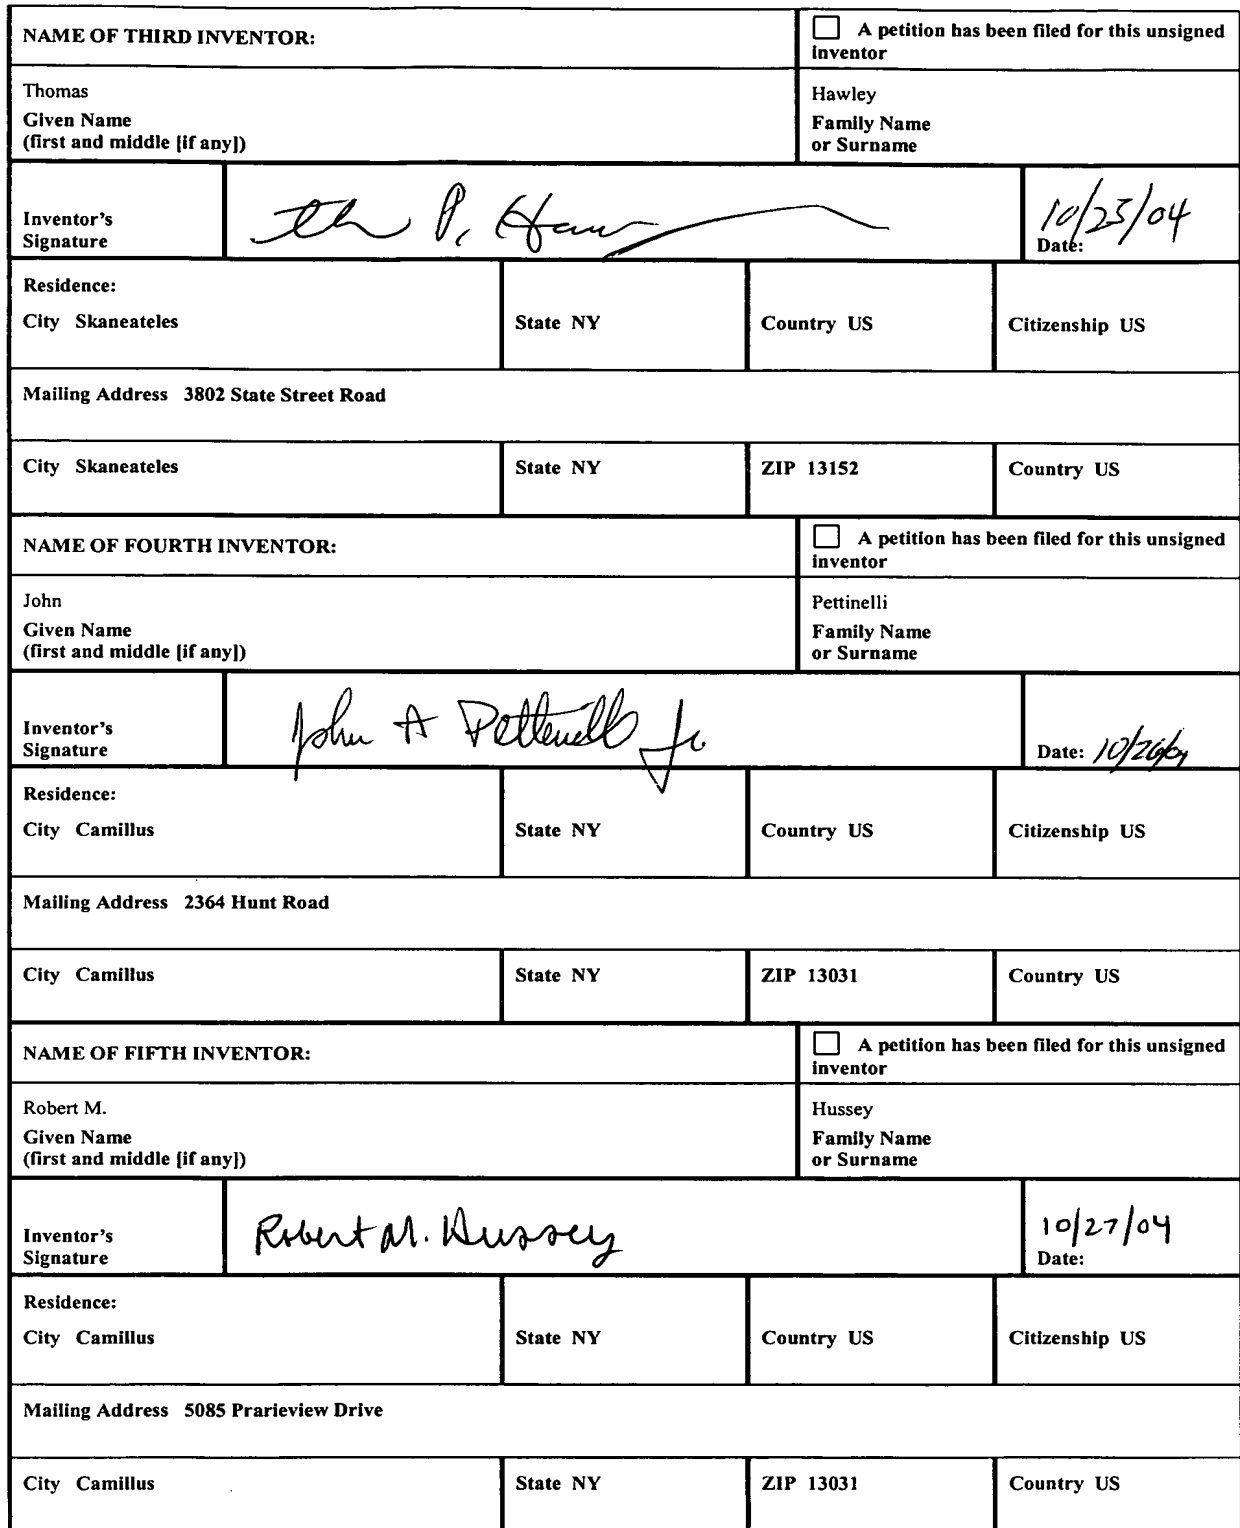 NAME OF THIRD INVENTOR:
A petition has been filed for this unsigned
inventor
Thomas
Given Name
(first and middle [if any])
Hawley
Family Name
or Surname
Inventor's
Signature
P. Haw
10/25/04
Date:
Residence:
City Skaneateles
State NY
Country US
Citizenship US
Mailing Address 3802 State Street Road
City Skaneateles
State NY
ZIP 13152
Country US
NAME OF FOURTH INVENTOR:
A petition has been filed for this unsigned
inventor
John
Given Name
(first and middle [if any])
Pettinelli
Family Name
or Surname
Inventor's
Signature
John A Pettinelli Jr.
Date: 10/26/04
Residence:
City Camillus
State NY
Country US
Citizenship US
Mailing Address 2364 Hunt Road
City Camillus
State NY
ZIP 13031
Country US
NAME OF FIFTH INVENTOR:
A petition has been filed for this unsigned
inventor
Robert M.
Given Name
(first and middle [if any])
Hussey
Family Name
or Surname
Inventor's
Signature
Robert M. Hussey
10/27/04
Date:
Residence:
City Camillus
State NY
Country US
Citizenship US
Mailing Address 5085 Prarieview Drive
City Camillus
State NY
ZIP 13031
Country US